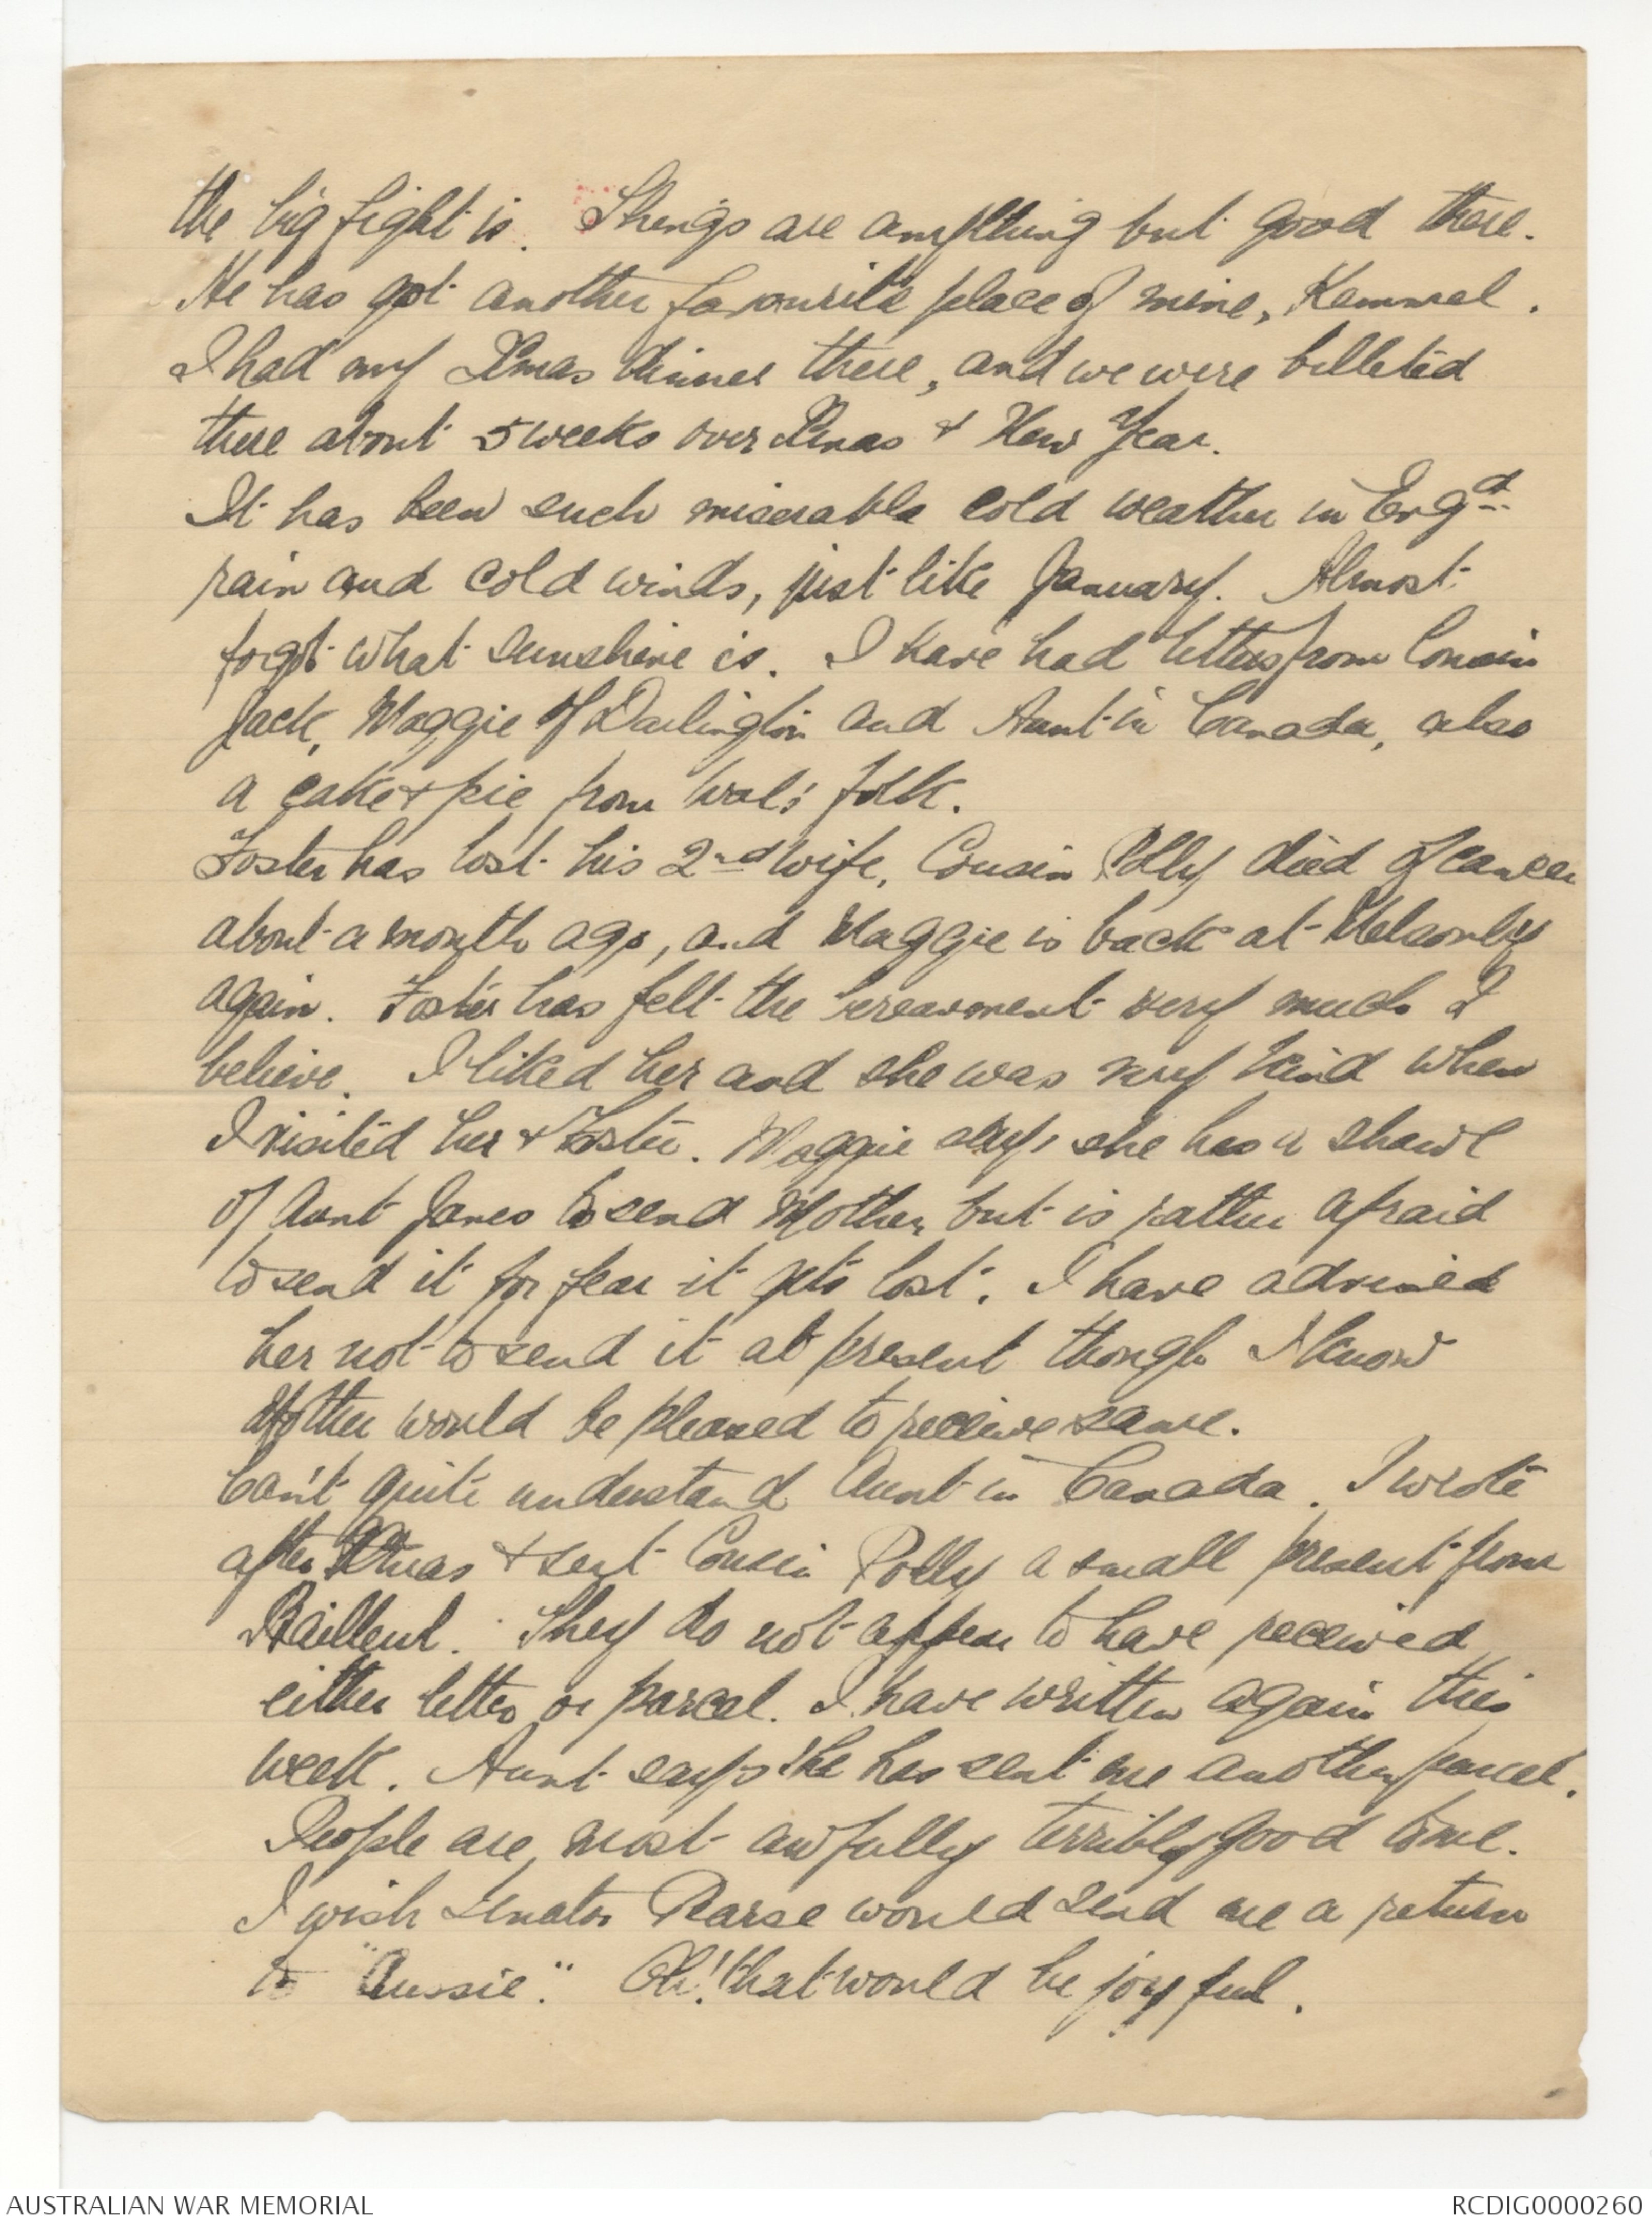 the big fight is. Things are anything but good there.
He has got another favourite place of mine, Kemmel.
I had my Xmas dinner there, and we were billeted
there about 5 weeks over Xmas & New Year.
It has been such miserable cold weather in Engd
rain and cold winds, just like January. Almost
forgot what sunshine is. I have had letters from Cousin
Jack, Maggie of Darlington and Aunt in Canada, also
a cake & pie from Wal's folk.
Foster has lost his 2nd wife, Cousin Polly died of cancer
about a month ago, and Maggie is back at Melsonby
again. Foster has felt the bereavment very much I
believe. I liked her and she was very kind when
I visited her & Foster. Maggie says she has a shawl
of Aunt Janes to send Mother, but is rather afraid
to send it for fear it gets lost. I have advised
her not to send it at present though I know
Mother would be pleased to receive same.
Can't quite understand Aunt in Canada. I wrote
after Xmas & sent Cousin Polly a small present from
Bailleul. They do not appear to have received
either letter or parcel. I have written again this
week. Aunt says she has sent me another parcel.
People are most awfully terribly good to me.
I wish Senator Pearse would send me a return
to "Aussie". Oh! that would be joyful.
AUSTRALIAN WAR MEMORIAL
RCDIG0000260